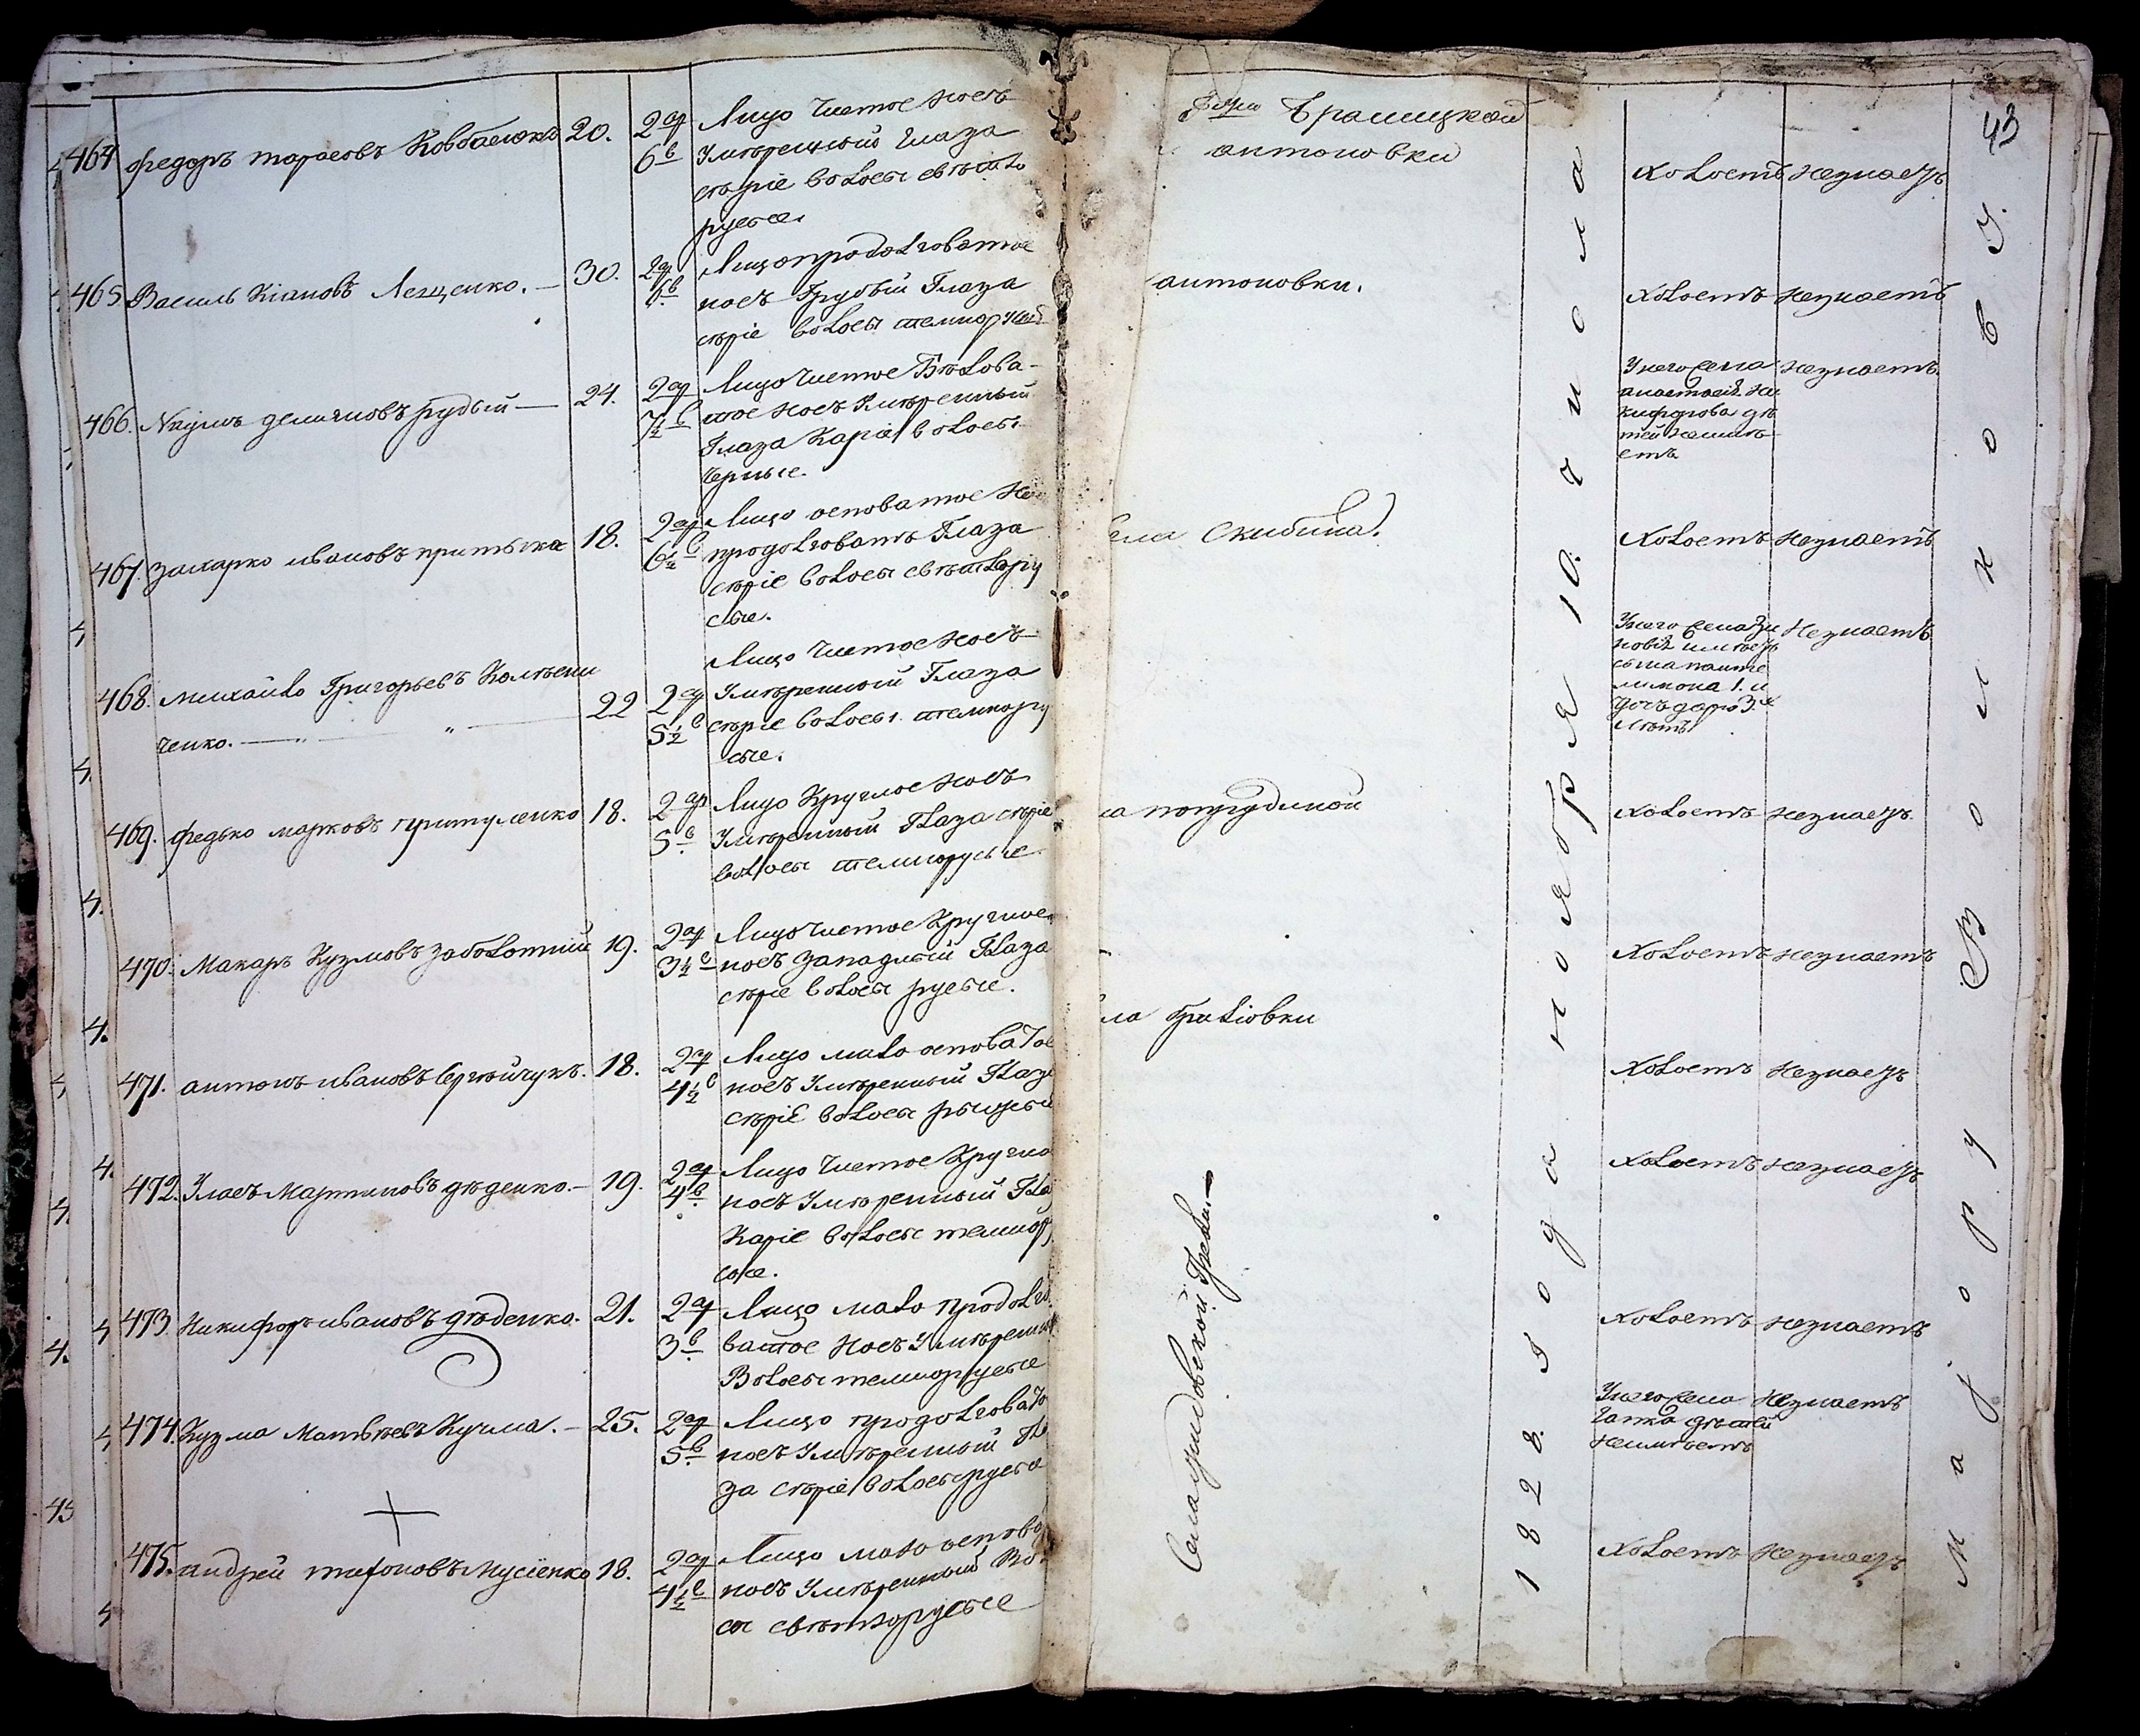 43
464 федоръ тарасовъ Ковбасюкъ 20. 2 ар 6 в Лицо Чистое носъ
Умѣренный Глаза
сѣріе волосы свѣтло
русые.
465 Василь Кіановъ Лещенко. — 30. 2 ар 6 в Лицо продолговатое
носъ Грубый Глаза
сѣріе волосы темнорусые
466. Наумъ демяновъ рудый — 24. 2 ар 7½ в Лицо Чистое Бѣлова-
тое носъ Умѣренный
Глаза Каріе волосы
Черные.
467. Захарко ивановъ притыка 18. 2 ар 6½ в Лицо осповатое
продолговатъ Глаза
сѣріе волосы свѣтлору
сые.
468. михайло Григорьевъ Колѣсни
ченко. — 22 2 ар 5½ в Лицо Чистое носъ
Умѣренный Глаза
сѣріе волосы темнору
сые.
469. федько марковъ гритуленко 18. 2 ар 5 в Лицо Круглое носъ
Умѣренный Глаза сѣріе
волосы темнорусые
470. Макаръ Кузмовъ заболотній 19. 2 ар 3½ в Лицо Чистое Круглое
носъ западлый Глаза
сѣріе волосы русые.
471. антонъ ивановъ Сергѣйчукъ. 18. 2 ар 4½ в Лицо мало осповатое
носъ Умѣренный Глаза
сѣріе волосы
472. Уласъ Мартиновъ дѣденко. — 19. 2 ар 4 в Лицо Чистое Кругло
носъ Умѣренный Гла
Каріе волосы темнору
сые.
473. Никифоръ ивановъ дѣденко. 21. 2 ар 3 в Лицо мало продолго
ватое носъ Умѣренный
Волосы темнорусые
474. Кузма Матвѣевъ Кучма. — 25. 2 ар 5 в Лицо продолговато
носъ Умѣренный Гла
за сѣріе волосы русые
475. андрей тихоновъ Мусіенко 18. 2 ар 4½ в Лицо мало оспова
носъ Умѣренный Воло
сы свѣтлорусые
антоновки
антоновки.
ела Скибина.
ла погрудиной
ла
Села
1828. года ноября 10. числа
Холостъ незнаетъ
Холостъ незнаетъ
У него жена незнаетъ
анастасія ни
кифорова дѣ
тей неимѣ
етъ
Холостъ незнаетъ
У него жена Зи незнаетъ
новія имѣетъ
сына панте
лимона 1. и
дочь дарю 3.х
лѣтъ
Холостъ незнаетъ
Холостъ незнаетъ
Холостъ незнаетъ
Холостъ незнаетъ
Холостъ незнаетъ
У него жена незнаетъ
Гапка дѣтей
неимѣетъ
Холостъ незнаетъ
Маjору